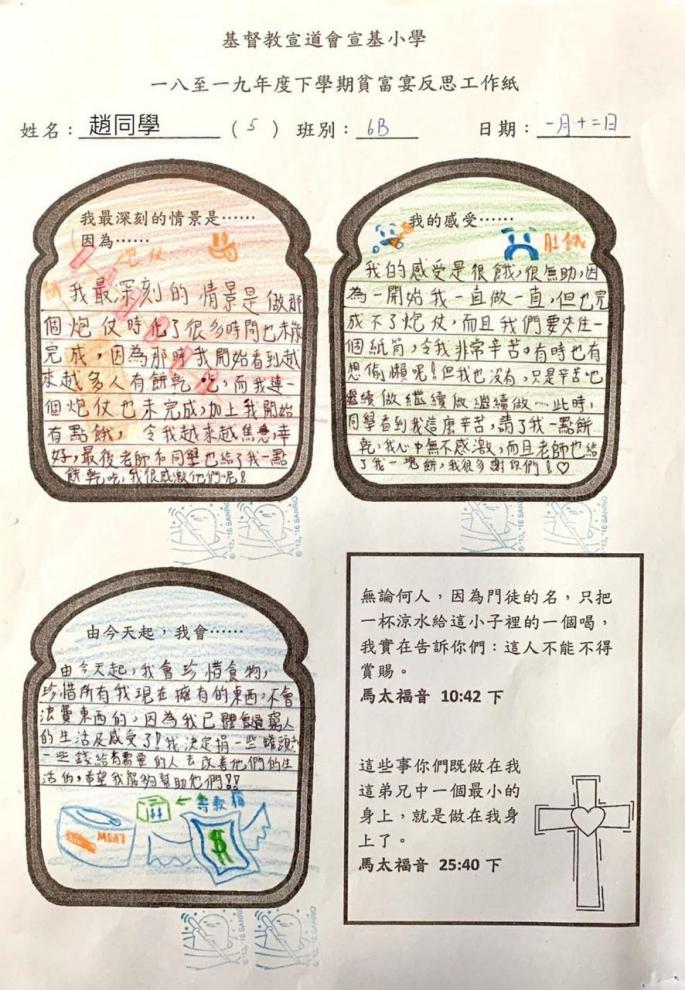 基督教宣道會宣基小學
一八至一九年度下學期貧富宴反思工作紙
姓名：趙同學 (5) 班別：6B 日期：一月十二日
我最深刻的情景是⋯⋯
因為⋯⋯
炮仗
我最深刻的情景是做那
個炮仗時化了很多時間也未能
完成，因為那時我開始看到越
來越多人有餅乾吃，而我連一
個炮仗也未完成，加上我開始
有點餓，令我越來越焦急，幸
好，最後老師和同學也給了我一點
餅乾吃，我很感激他們呢！
我的感受⋯⋯
肚餓
我的感受是很餓，很無助，因
為一開始我一直做一直，但也完
成不了炮仗，而且我們要夾住一
個紙筒，令我非常辛苦。有時也有
想偷懶呢！但我也沒有，只是辛苦地
繼續做繼續做繼續做⋯⋯此時，
同學看到我這麼辛苦，請了我一點餅
乾，我心中無不感激，而且老師也給
了我一塊餅，我很多謝你們！♡
由今天起，我會⋯⋯
由今天起，我會珍惜食物，
珍惜所有我現在擁有的東西，不會
浪費東西的，因為我已體會過窮人
的生活及感受了！我決定捐一些罐頭和
一些錢給有需要的人去改善他們的生
活的，希望我能夠幫助他們！！
$$ ← 籌款箱
MEAT
$
無論何人，因為門徒的名，只把
一杯涼水給這小子裡的一個喝，
我實在告訴你們：這人不能不得
賞賜。
馬太福音 10:42 下
這些事你們既做在我
這弟兄中一個最小的
身上，就是做在我身
上了。
馬太福音 25:40 下